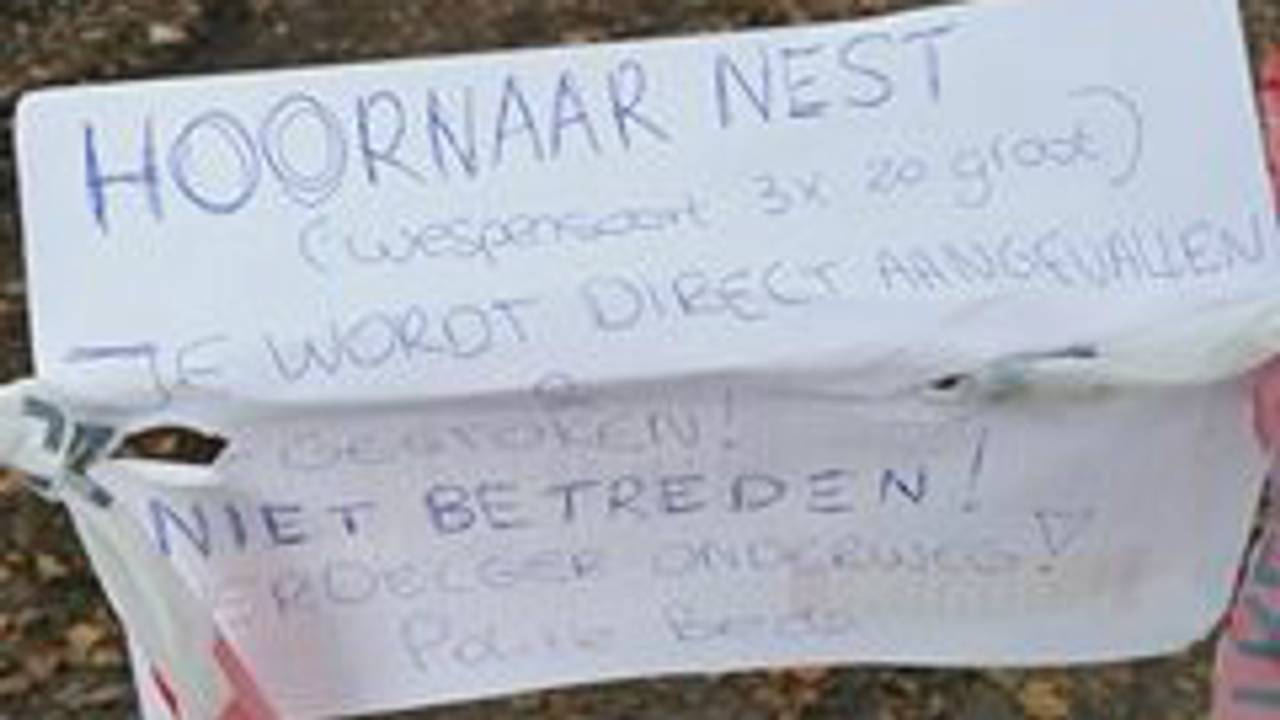 HOORNAAR NEST
(wespensoort 3x zo groot)
JE WORDT DIRECT AANGEVALLEN
&
GESTOKEN!
NIET BETREDEN!
ONDERWEG!
Politie Breda